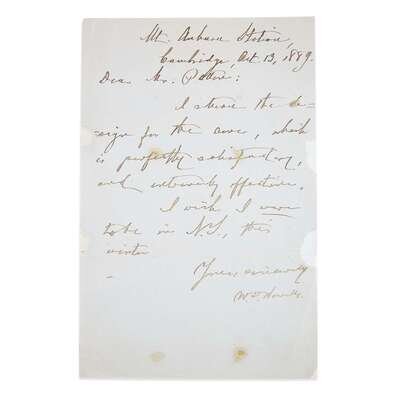 Mt. Auburn Station,
Cambridge, Oct. 13, 1889.
Dear Mr.
I return the de-
sign for the cover, which
is perfectly satisfactory,
and extremely effective.
I wish I were
to be in N.Y., this
winter
Yours sincerely
W. D. Howells.